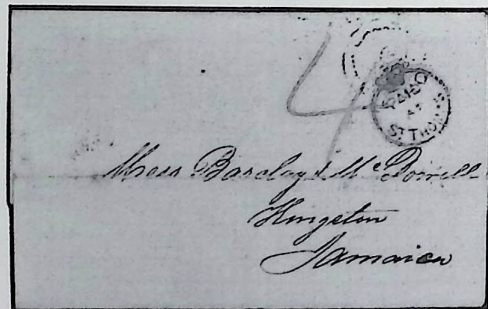 4
ST THOMAS
Mess Barclay & McDowell
Kingston
Jamaica